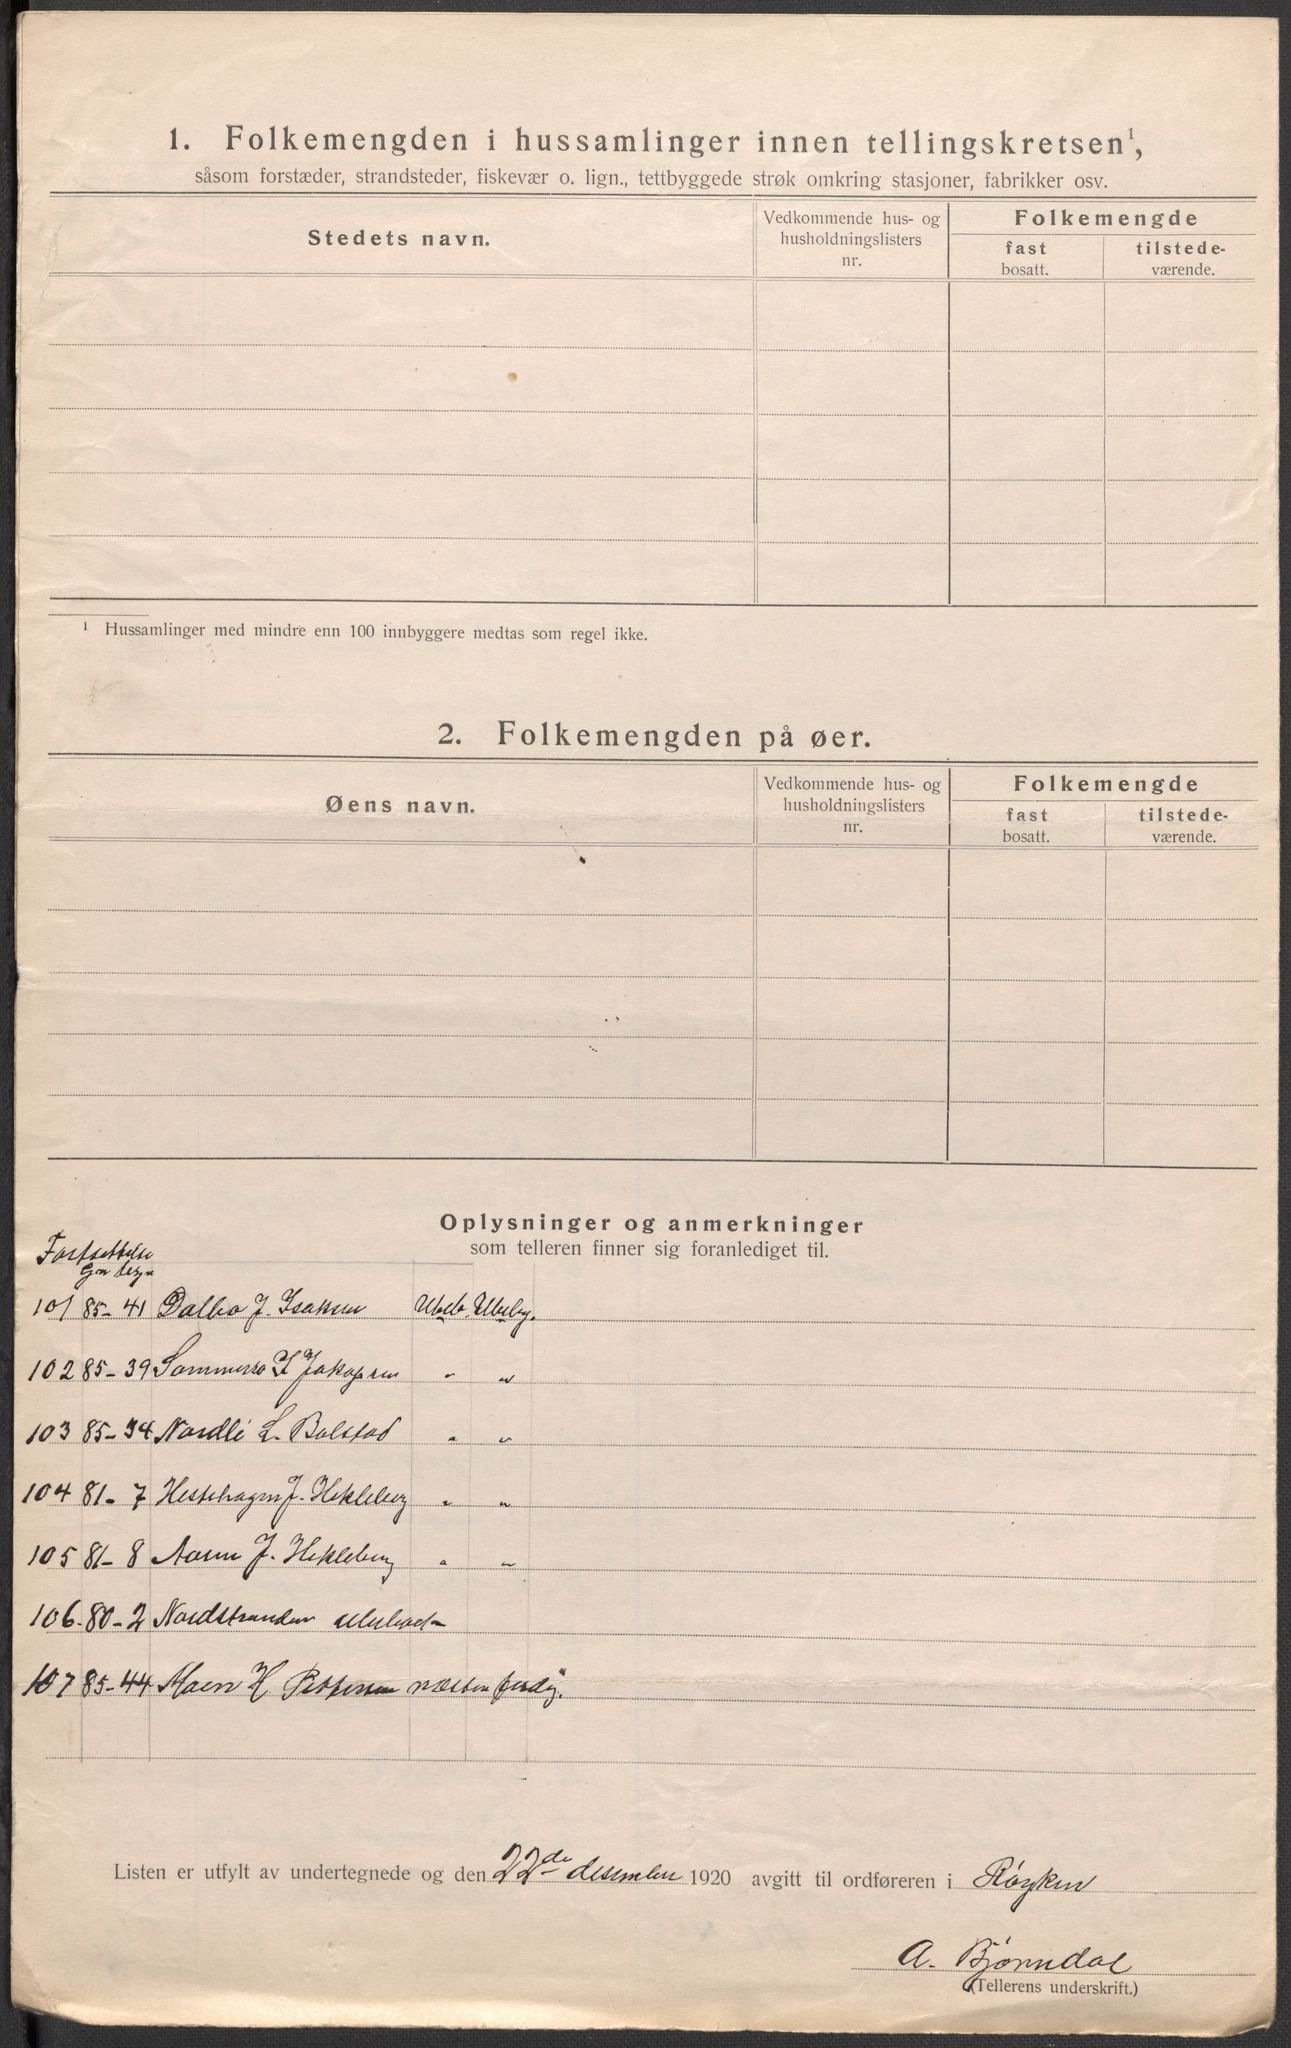 1. Folkemengden i hussamlinger innen tellingskretsen¹,
såsom forstæder, strandsteder, fiskevær o. lign., tettbyggede strøk omkring stasjoner, fabrikker osv.
Stedets navn.
Vedkommende hus- og husholdningslisters nr.
Folkemengde
fast bosatt.
tilstede-værende.
¹ Hussamlinger med mindre enn 100 innbyggere medtas som regel ikke.
2. Folkemengden på øer.
Øens navn.
Vedkommende hus- og husholdningslisters nr.
Folkemengde
fast bosatt.
tilstede-værende.
Oplysninger og anmerkninger
som telleren finner sig foranlediget til.
Fortsettelse
101 85-41 Dalbo J. Isaksen Ubeb. Ubeb.
102 85-39 Sommerro I Jakopsen " "
103 85-34 Nordli L. Bolstad " "
104 81-7 Hestehagen J. Hekleberg " "
105 81-8 Aasen J. Hekleberg " "
106-80-2 Nordstranden ubebod
107 85-44 Moen H Pettersen næsten ferdig.
Listen er utfylt av undertegnede og den 22de desember 1920 avgitt til ordføreren i Røyken
A. Bjørndal
(Tellerens underskrift.)